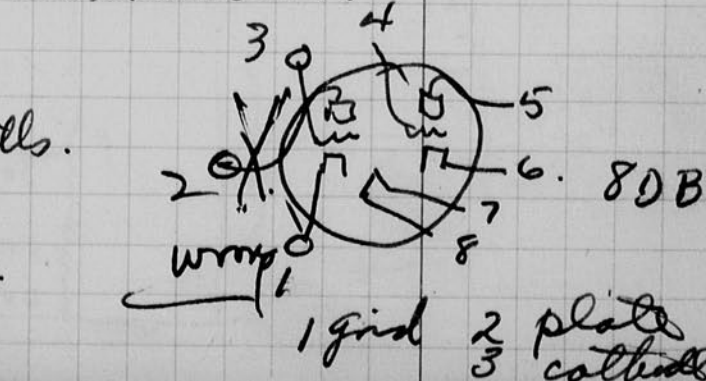 3 4
lls.
5
2 6. 8DB
7
wrong 1 8
1 grid 2 plate
3 cathode